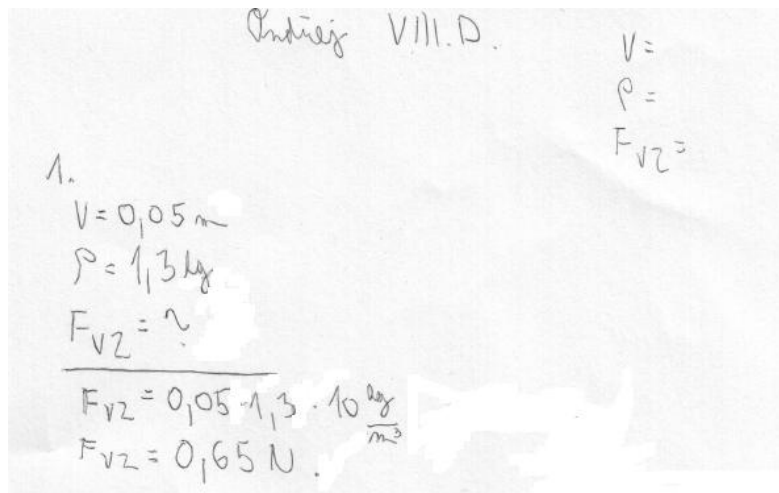 Ondřej VIII.D.
V=
ρ=
Fvz=
1.
V=0,05 m
ρ=1,3 kg
Fvz=?
Fvz=0,05·1,3·10 kg/m³
Fvz=0,65 N.